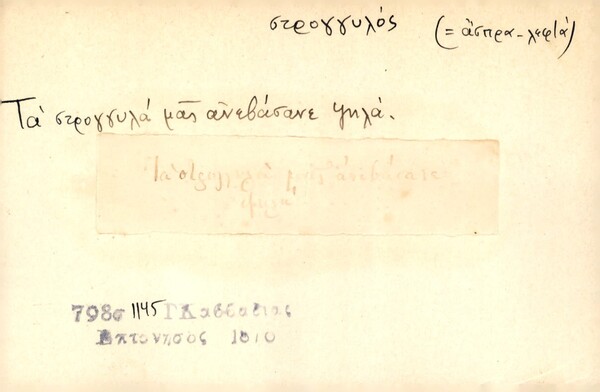 στρογγυλός (= ἄσπρα - λεφτά)
Τά στρογγυλά μᾶς ἀνεβάσανε ψηλά.
Τὰ στρογγυλὰ μᾶς ἀνεβάσανε
ψηλά
798σ 1145 Γ Καββαδίας
Επτάνησος 1876